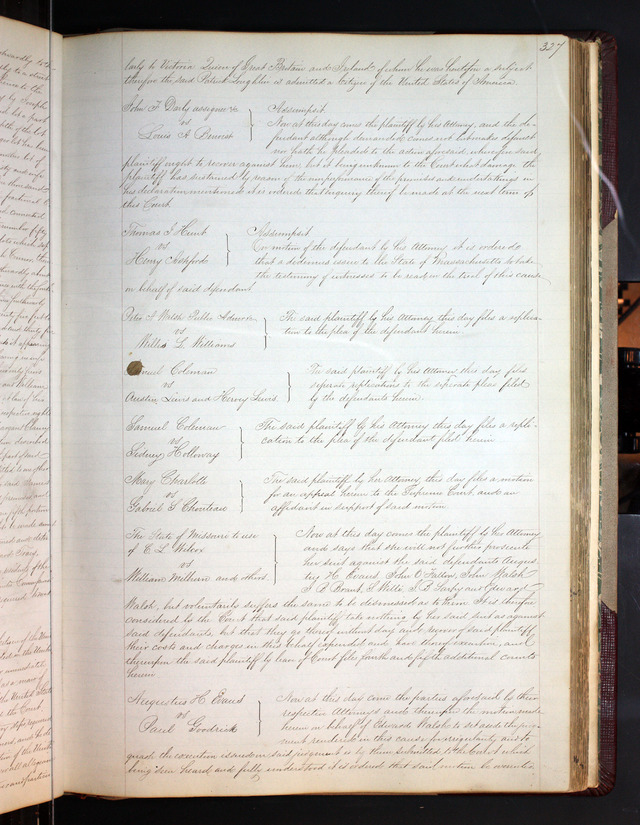 327
larly to Victoria Queen of Great Britain and Ireland of whom he was heretofore a subject
therefore the said Patrick Loughlin is admitted a Citizen of the United States of America.
John F Darby assignee &c
vs
Louis A Benoist
Assumpsit
Now at this day came the plaintiff by his Attorney, and the de-
fendant although demanded comes not but makes default
nor hath he pleaded to the action aforesaid, wherefore said
plaintiff ought to recover against him, but it being unknown to the Court what damage the
plaintiff has sustained by reason of the non performance of the promises and undertakings in
his declaration mentioned it is ordered that inquiry thereof be made at the next term of
this Court
Thomas J Hunt
vs
Henry
Assumpsit
On motion of the defendant by his Attorney it is ordered
that a dedimus issue to the State of Massachusetts to take
the testimony of witnesses to be read on the trial of this cause
on behalf of said defendant
Peter A Walsh Public Admr
vs
Willis L Williams
The said plaintiff by his Attorney this day files a replica-
tion to the plea of the defendant herein
Coleman
vs
Austin Lewis and Harvey Lewis
The said plaintiff by his Attorney this day files
separate replications to the separate pleas filed
by the defendants herein
Samuel Coleman
vs
Sidney Holloway
The said plaintiff by his Attorney this day files a repli-
cation to the plea of the defendant filed herein
Mary Charlotte
vs
Gabriel S Chouteau
The said plaintiff by her Attorney this day files a motion
for an appeal herein to the Supreme Court, and an
affidavit in support of said motion
The State of Missouri to use
of E L Wilcox
vs
William Milburn and others
Now at this day comes the plaintiff by his Attorney
and says that she will not further prosecute
her suit against the said defendants Augus
tus H Evans, John O Fallon, John Walsh
J B Brant, S Willi, J B Sarpy and Edward
Walsh, but voluntarily suffers the same to be dismissed as to them It is therefore
considered by the Court that said plaintiff take nothing by his said suit as against
said defendants, but that they go thereof without day and recover of said plaintiff
their costs and charges in this behalf expended and have thereof execution, and
thereupon the said plaintiff by leave of Court files fourth and fifth additional counts
herein
Augustus H Evans
vs
Paul Goodrich
Now at this day come the parties aforesaid by their
respective Attorneys and thereupon the motion made
herein on behalf of Edward Walsh to set aside the judg-
ment rendered in this cause for irregularity and to
quash the execution issued on said judgment is by them submitted to the Court which
being seen heard and fully understood it is ordered that said motion be overruled